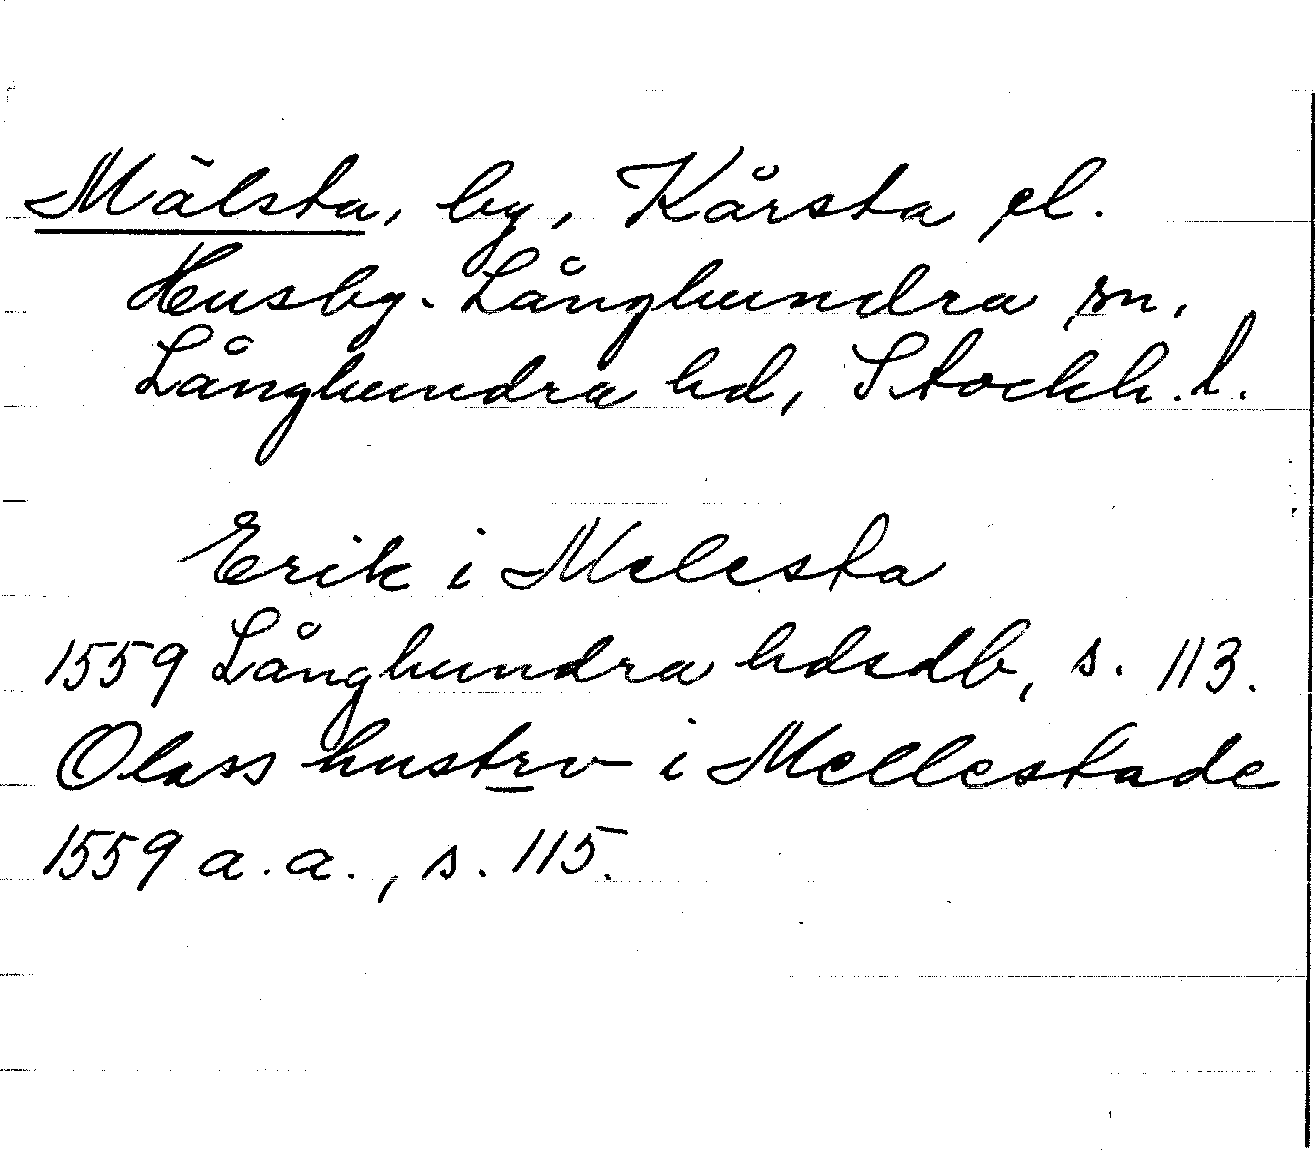 Mälsta, by, Kårsta el.
Husby-Långhundra sn,
Långhundra hd, Stockh. l.
Erik i Melesta
1559 Långhundra hdsdb, s. 113.
Olass hustrv i Mellestade
1559 a.a., s. 115.